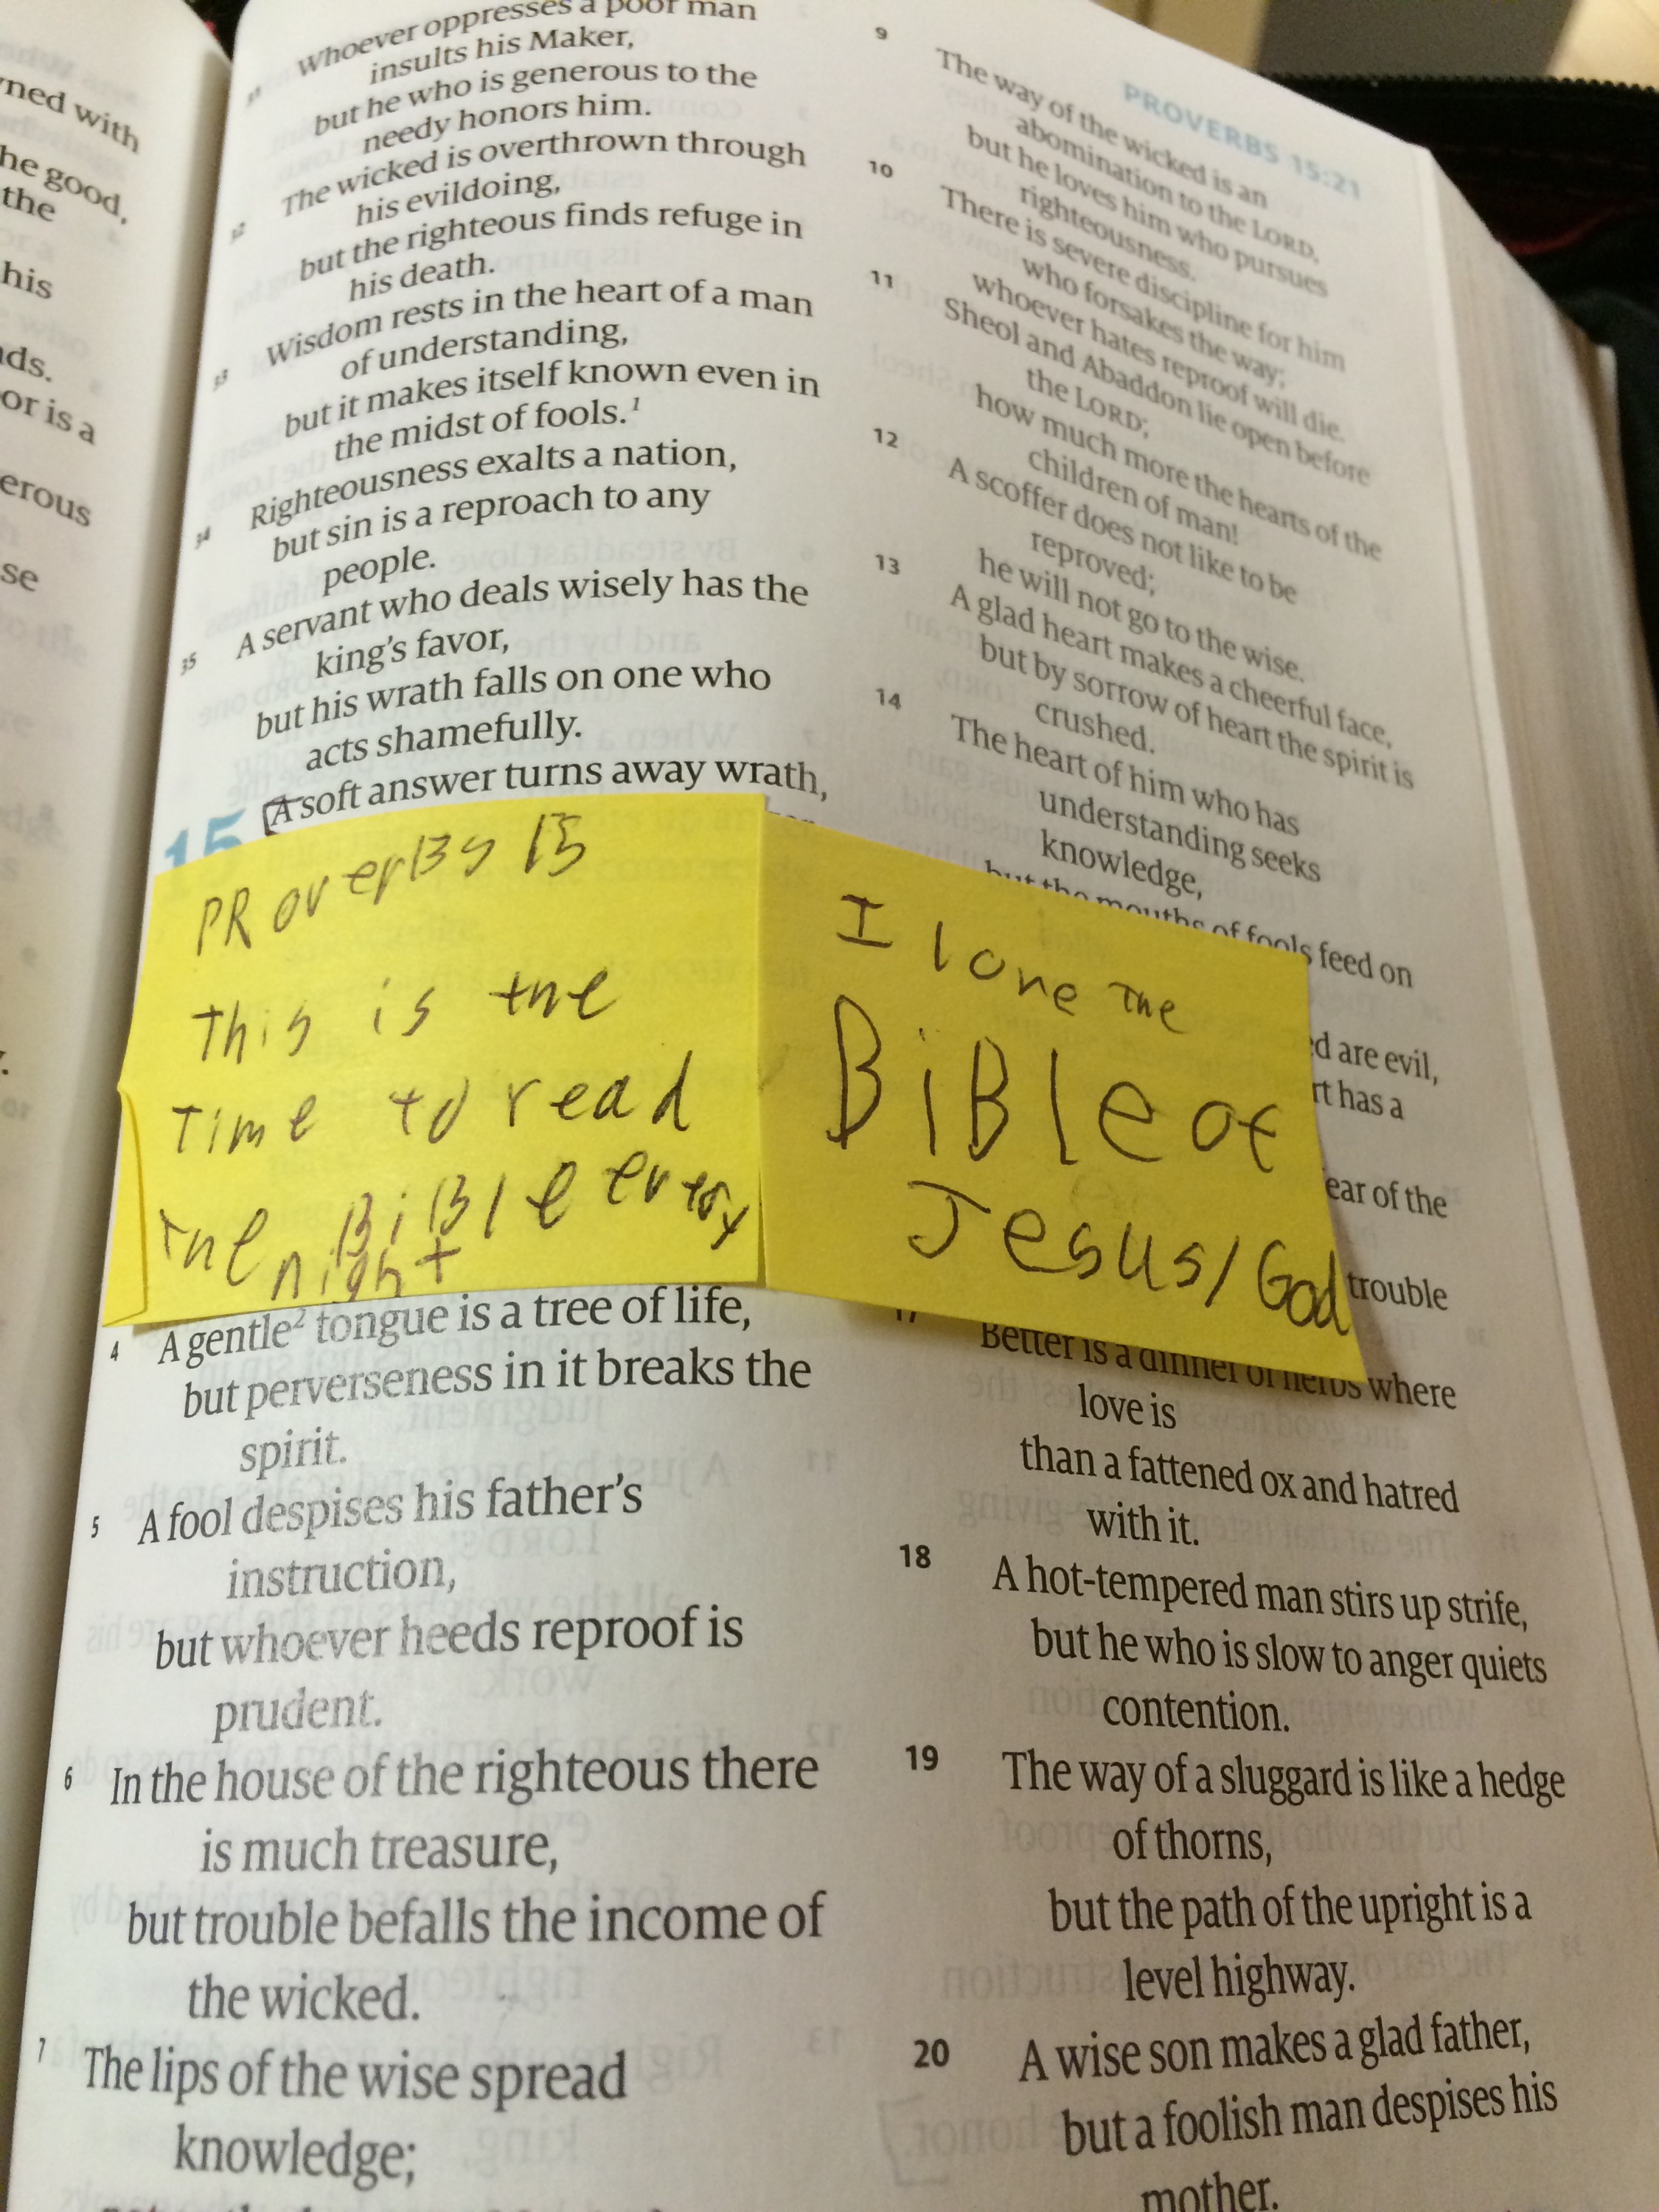 ned with
he good,
the
his
ds.
or is a
erous
se
Whoever oppresses a poor man
insults his Maker,
but he who is generous to the
needy honors him.
32 The wicked is overthrown through
his evildoing,
but the righteous finds refuge in
his death.
33 Wisdom rests in the heart of a man
of understanding,
but it makes itself known even in
the midst of fools.1
34 Righteousness exalts a nation,
but sin is a reproach to any
people.
35 A servant who deals wisely has the
king's favor,
but his wrath falls on one who
acts shamefully.
15 A soft answer turns away wrath,
PRoverBs 15
This is the
Time to read
The BiBle every
night
4 A gentle2 tongue is a tree of life,
but perverseness in it breaks the
spirit.
5 A fool despises his father's
instruction,
but whoever heeds reproof is
prudent.
6 In the house of the righteous there
is much treasure,
but trouble befalls the income of
the wicked.
7 The lips of the wise spread
knowledge;
PROVERBS 15:21
9 The way of the wicked is an
abomination to the LORD,
but he loves him who pursues
righteousness.
10 There is severe discipline for him
who forsakes the way;
whoever hates reproof will die.
11 Sheol and Abaddon lie open before
the LORD;
how much more the hearts of the
children of man!
12 A scoffer does not like to be
reproved;
he will not go to the wise.
13 A glad heart makes a cheerful face,
but by sorrow of heart the spirit is
crushed.
14 The heart of him who has
understanding seeks
knowledge,
but the mouths of fools feed on
I love The
BiBle of
Jesus/God
d are evil,
rt has a
ear of the
trouble
17 Better is a dinner of herbs where
love is
than a fattened ox and hatred
with it.
18 A hot-tempered man stirs up strife,
but he who is slow to anger quiets
contention.
19 The way of a sluggard is like a hedge
of thorns,
but the path of the upright is a
level highway.
20 A wise son makes a glad father,
but a foolish man despises his
mother.